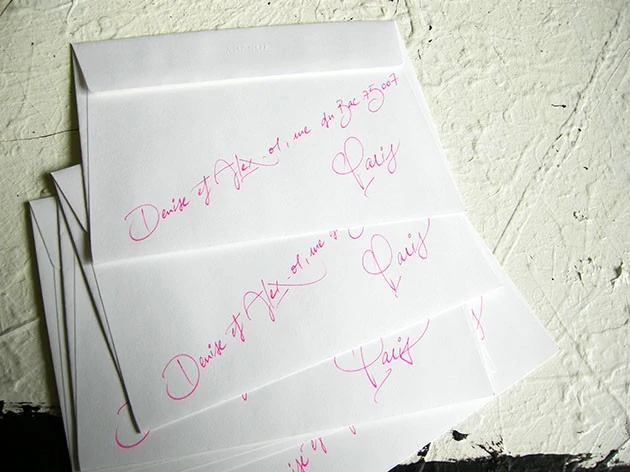 Denise et Alex - 01, rue du Bac 75007
Paris
Denise et Alex - 01, rue
Paris
Paris